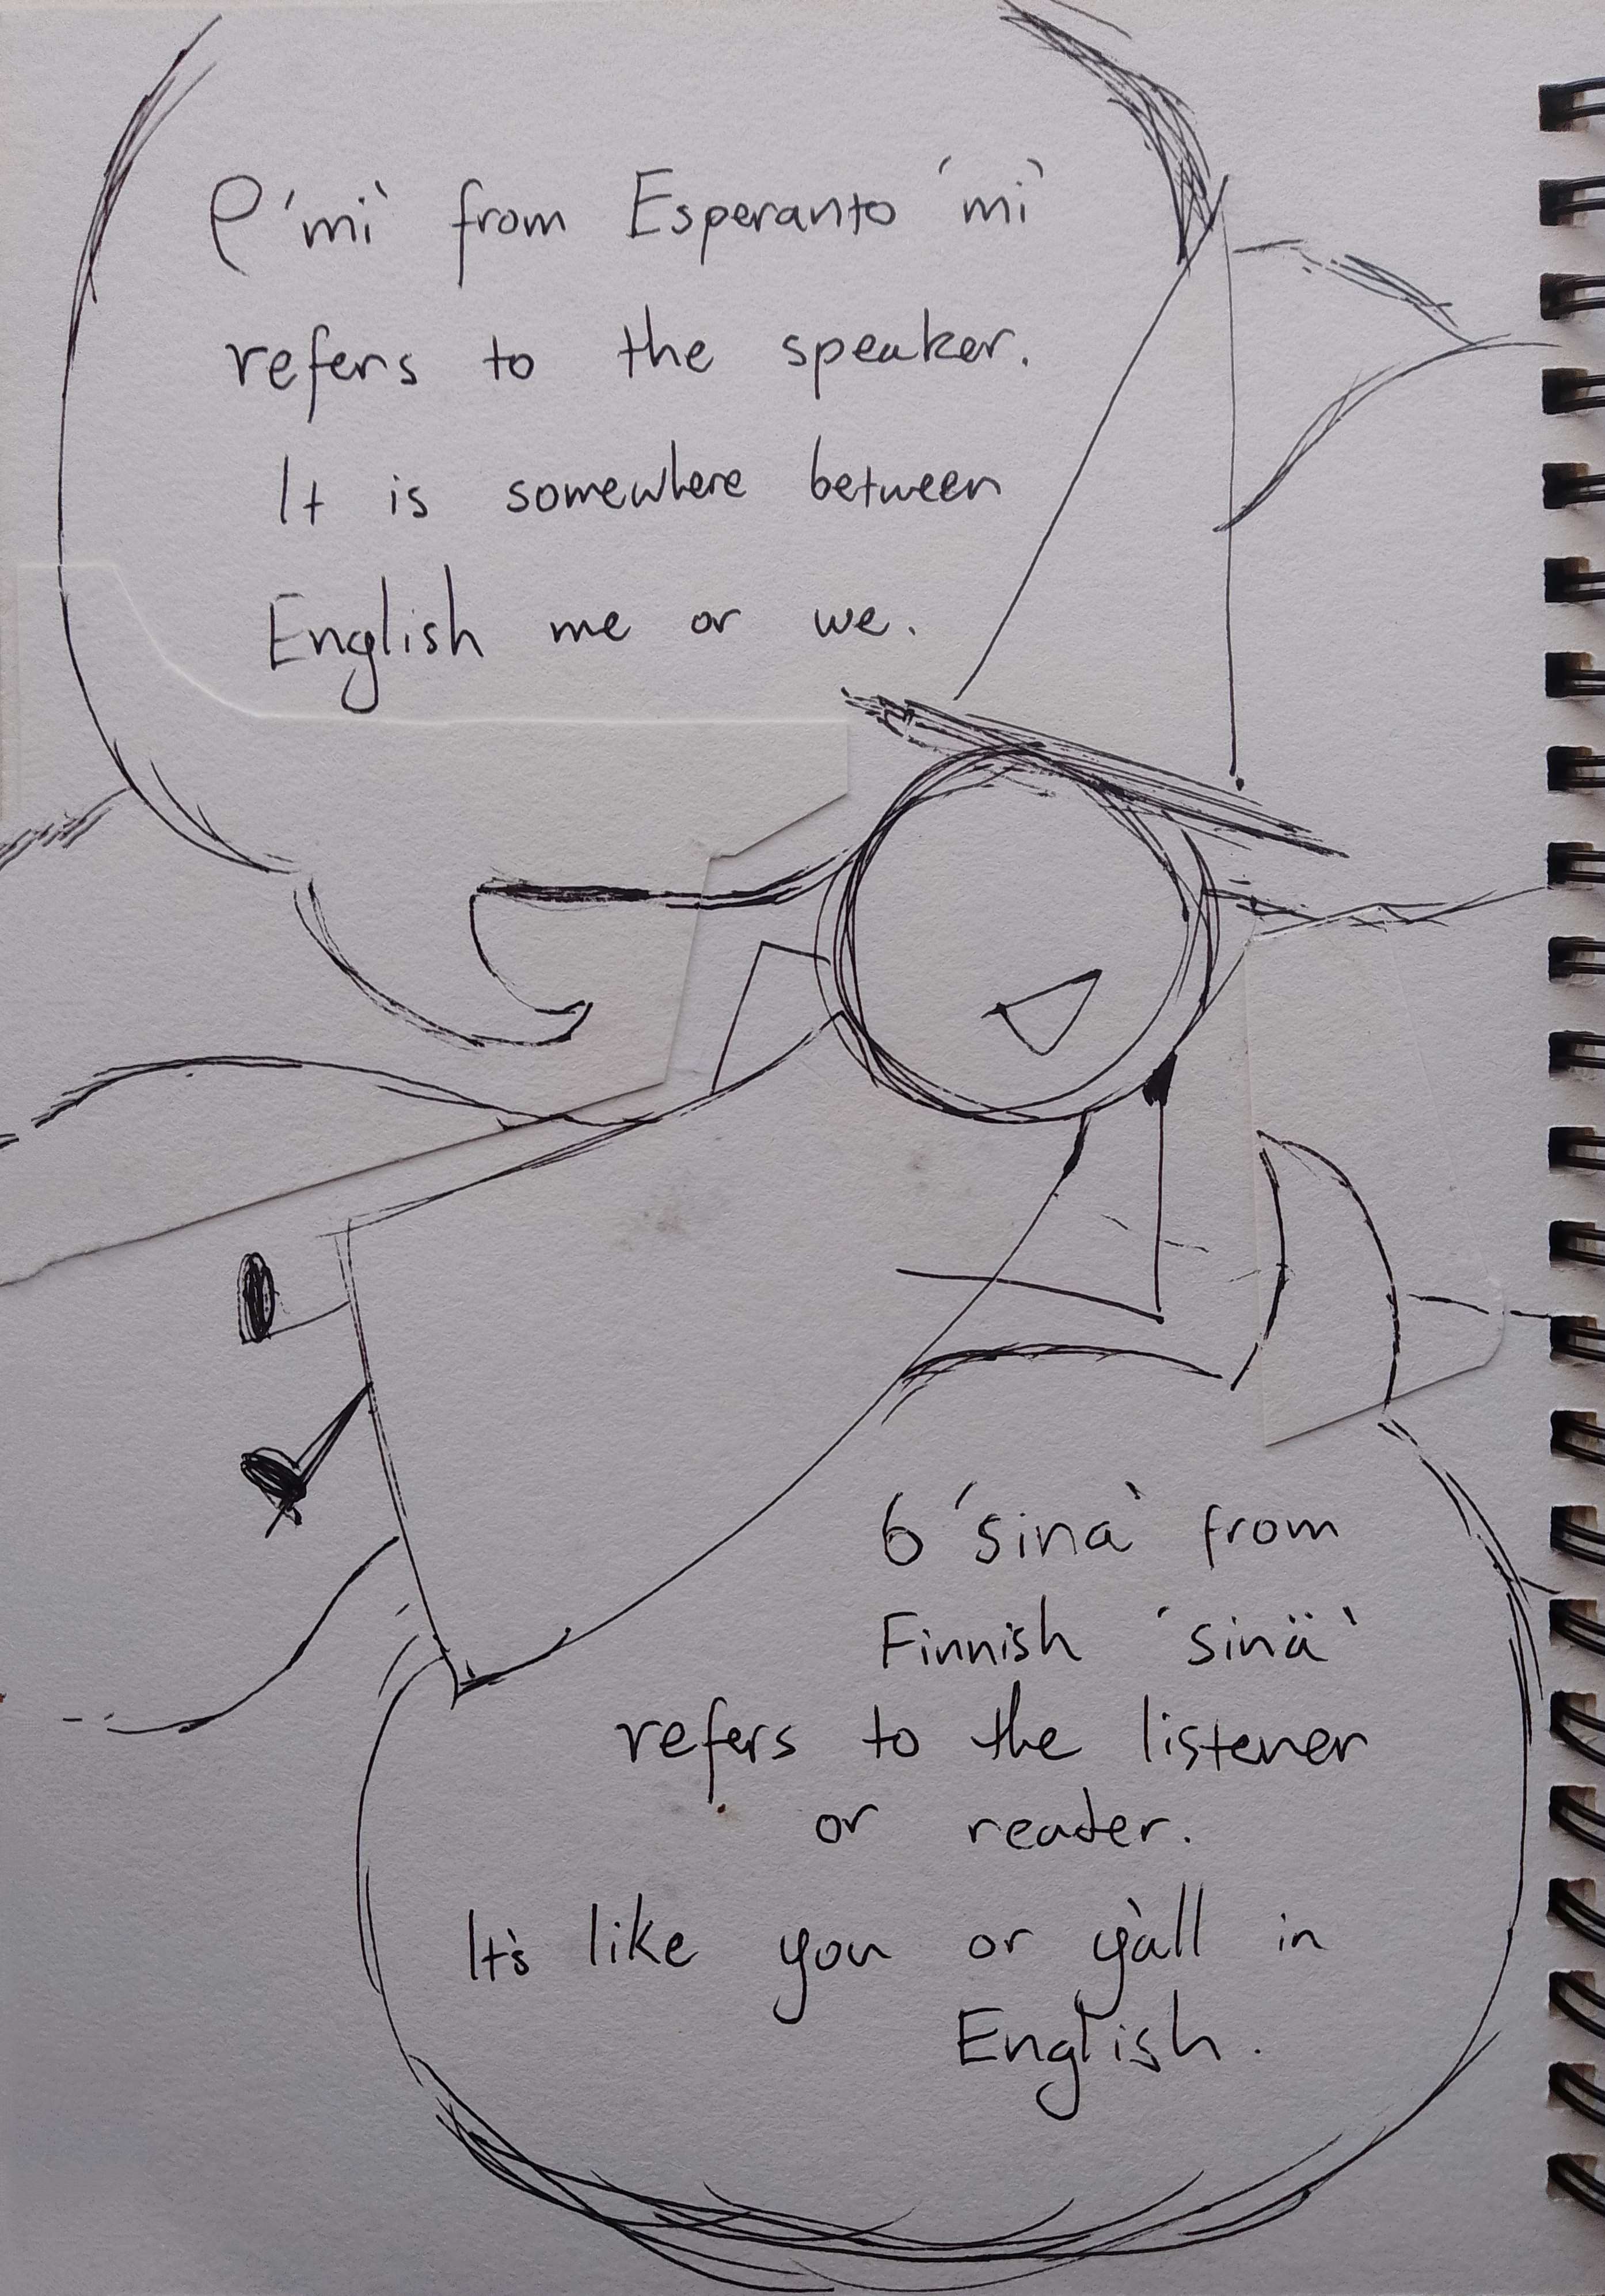 ᑭ 'mi' from Esperanto 'mi'
refers to the speaker.
It is somewhere between
English me or we.
6 'sina' from
Finnish 'sinä'
refers to the listener
or reader.
It's like you or y'all in
English.